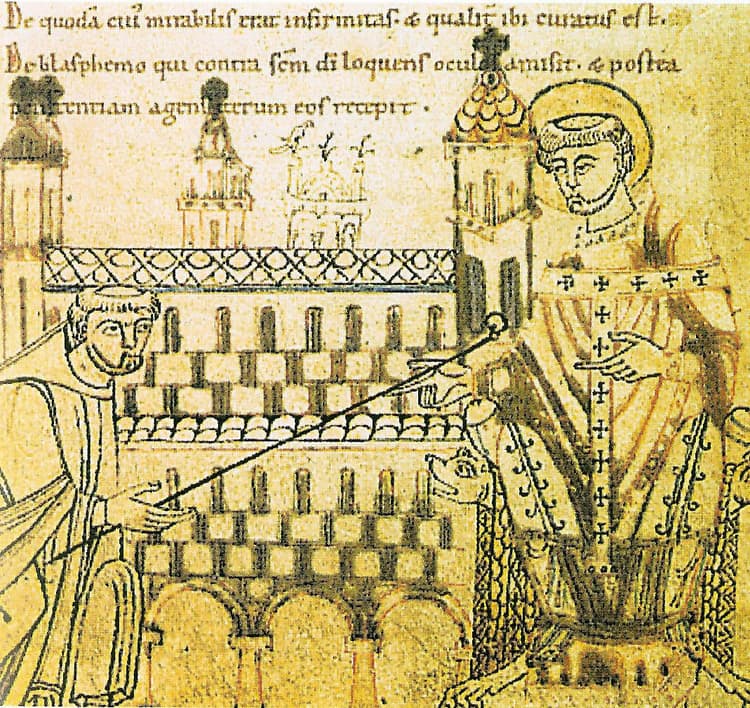 De quodā cui᷒ mirabilis erat infirmitas. & qualit̄ ibi curatus est.
De blasphemo qui contra sc̄m dī loquens oculos amisit. & postea
penitentiam agens iterum eos recepit.